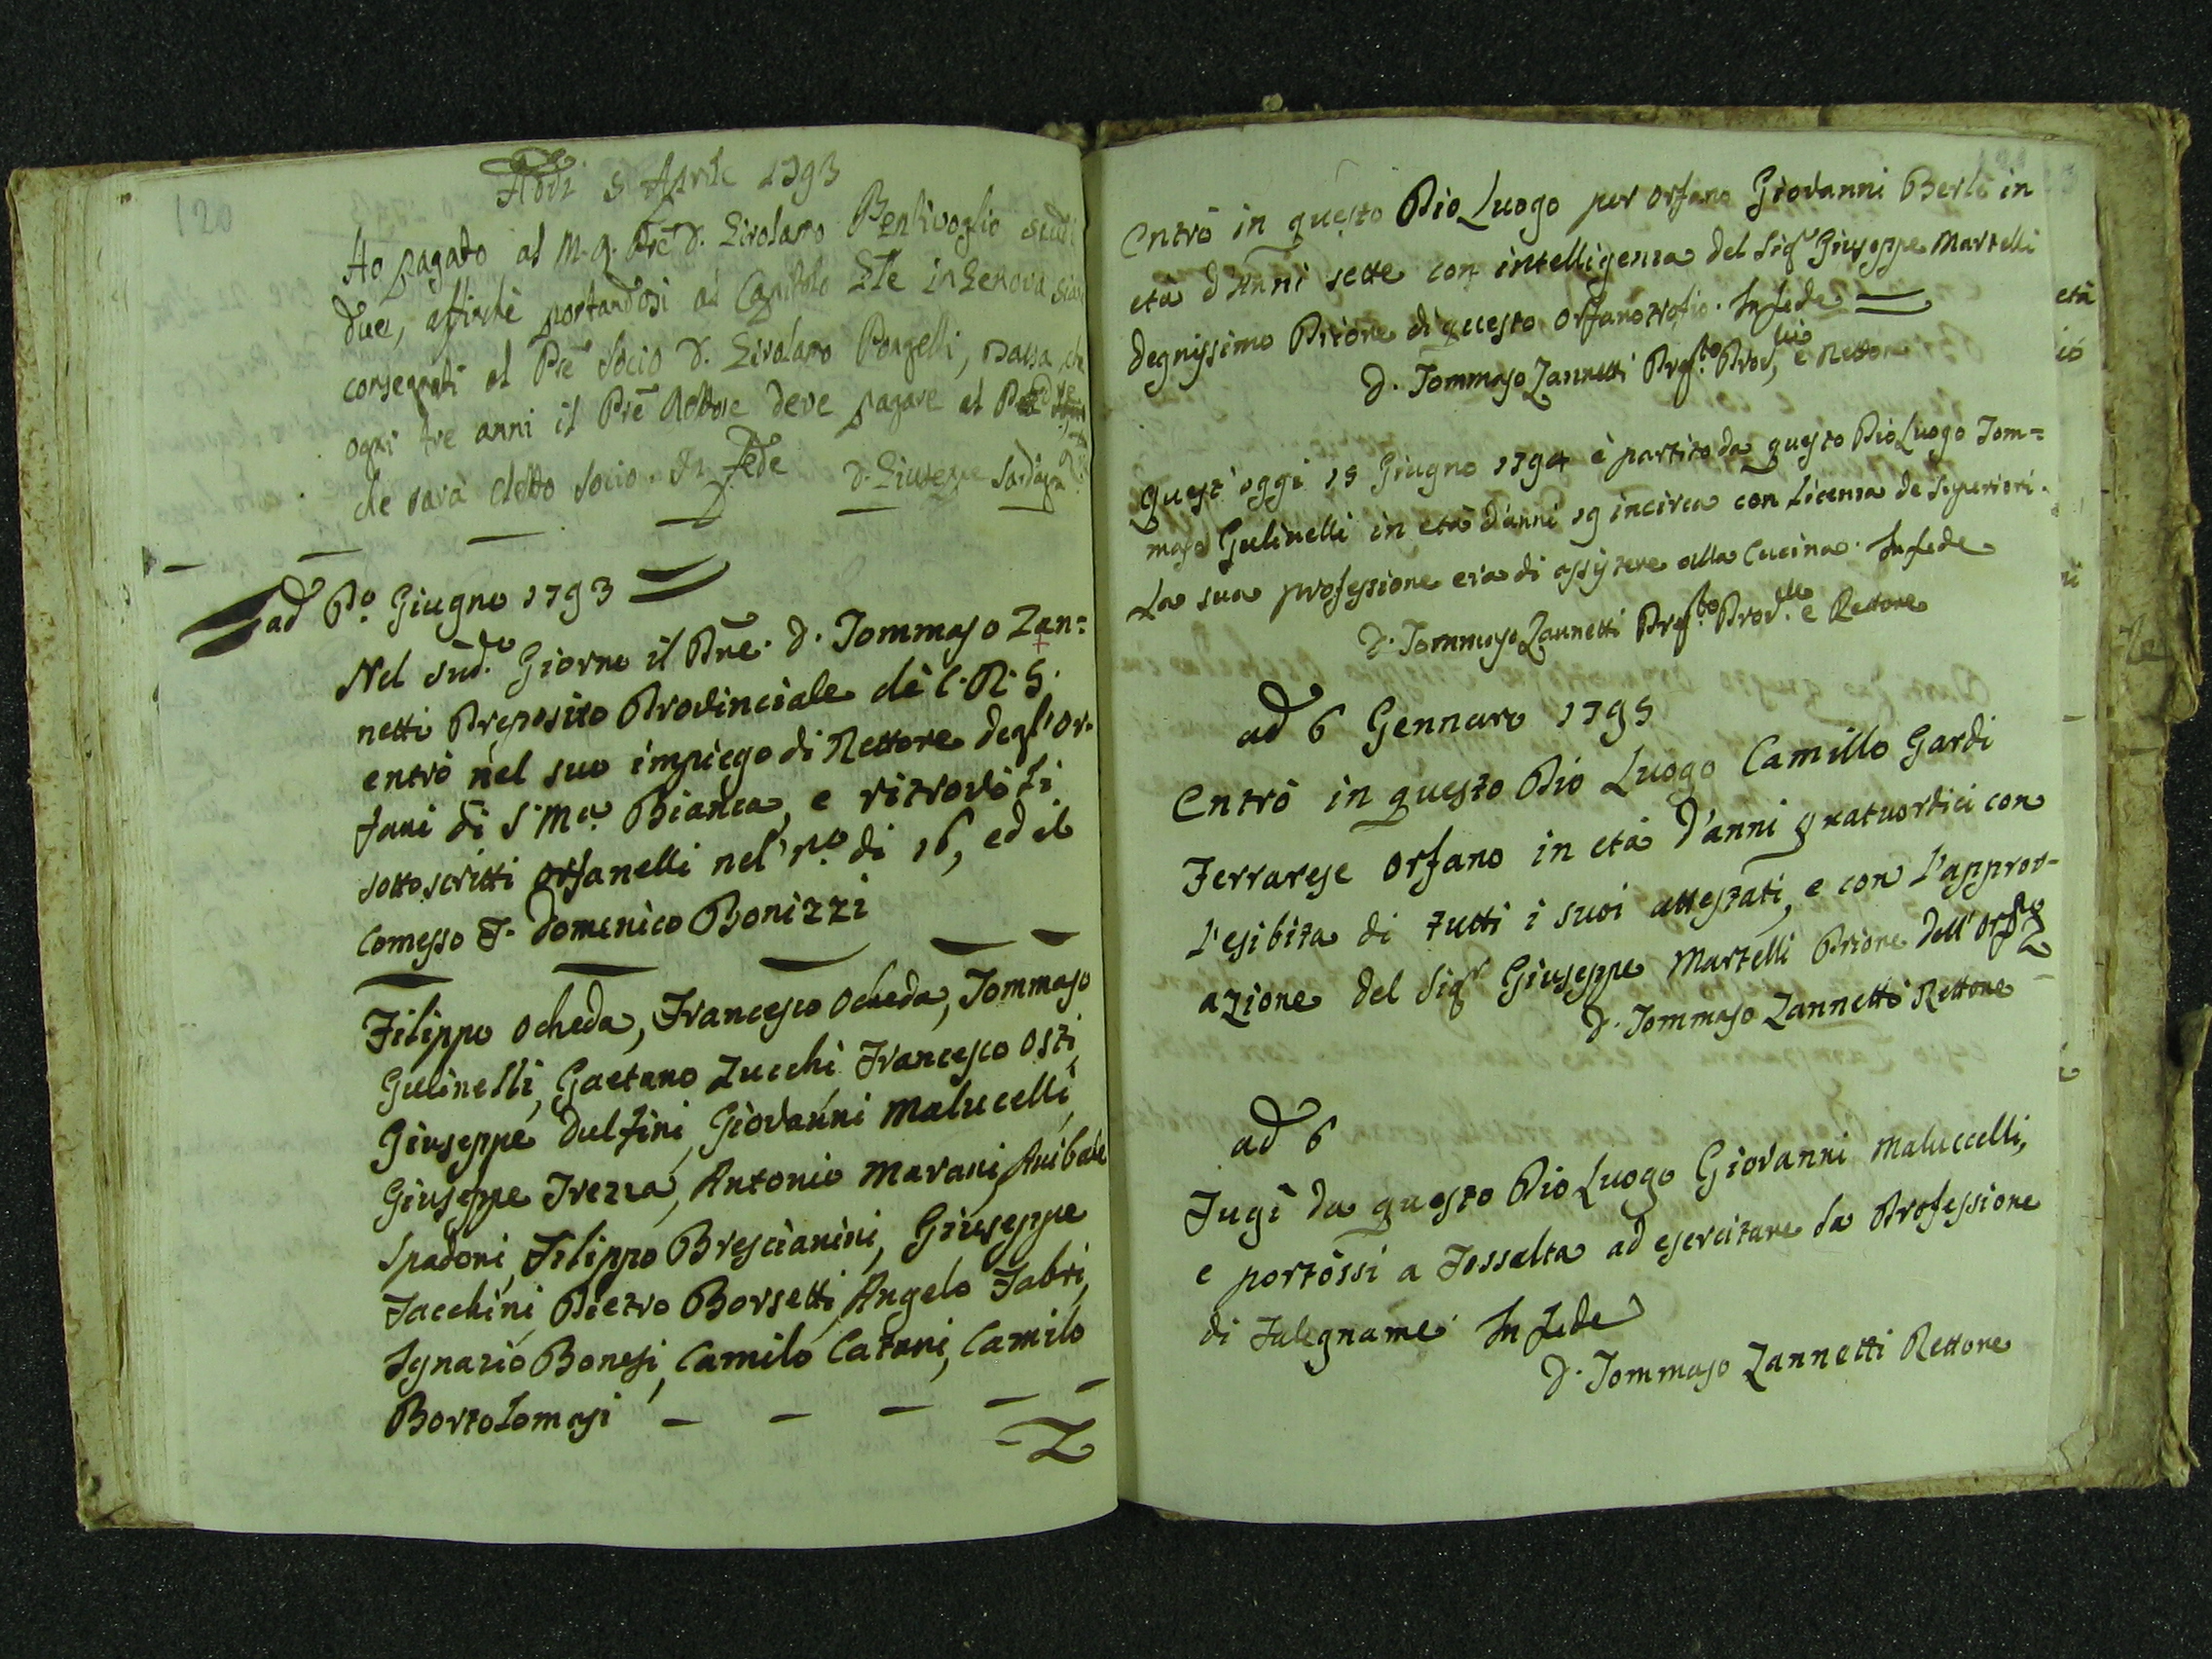 120
Adi 5 Aprile 1793
Ho pagato al M. R. Pre D. Girolamo Bentivoglio scudi
due, affinchè portandosi al Capitolo Gle in Genova siano
consegnati al Pre Socio D. Girolamo Pongelli, tassa che
ogni tre anni il Pre Rettore deve pagare al
che sarà eletto Socio. In fede D. Giuseppe
ad P.o Giugno 1793
Nel sud.o Giorno il Pre. D. Tommaso Zan=
netti Preposito Provinciale de C. R. S.
entrò nel suo impiego di Rettore degl'or-
fani di S. Ma. Bianca, e ritrovò li
sottoscritti orfanelli nel n.o di 16, ed il
Comesso F. Domenico Bonizzi
Filippo Ocheda, Francesco Ocheda, Tommaso
Gulinelli, Gaetano Zucchi Francesco Osti,
Giuseppe Dulfini, Giovanni Malucelli,
Giuseppe Trezza, Antonio Marani, Anibale
Spadoni, Filippo Brescianini, Giuseppe
Facchini, Pietro Borsetti, Angelo Fabri,
Ignazio Bonesi, Camilo Catani, Camilo
Bortolomasi
Z
Entrò in questo Pio Luogo per orfano Giovanni Berli in
età d'Anni sette con intelligenza del Sigr Giuseppe Martelli
degnissimo Priore di questo orfanotrofio. In fede
D. Tommaso Zannetti Prep.to Prov.le e Rettore
Quest'oggi 15 Giugno 1794 è partito da questo Pio Luogo Tom=
maso Gulinelli in età d'anni 19 incirca con licenza de Superiori.
La sua professione era di assistere alla Cucina. In fede
D. Tommaso Zannetti Prep.to Prov.le e Rettore
ad 6 Gennaro 1795
Entrò in questo Pio Luogo Camillo Gardi
Ferrarese orfano in età d'anni quatuordici con
l'esibita di tutti i suoi attestati, e con l'approv-
azione del Sigr Giuseppe Martelli Priore dell'Orf.o
D. Tommaso Zannetti Rettore
ad 6
Fugì da questo Pio Luogo Giovanni Maluccelli,
e portossi a Fossalta ad esercitare la Professione
di Falegname. In fede
D. Tommaso Zannetti Rettore